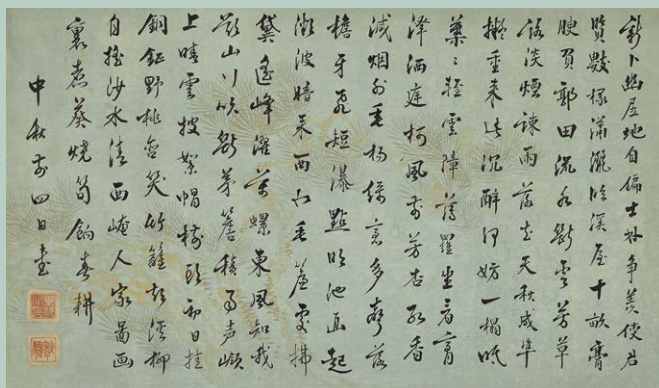 新卜幽居地自偏士林争羡使君
賢數椽瀟灑臨溪屋十畝膏
腴負郭田流水斷雲芳草
路淡煙疎雨落花天秋成準
擬重来此沉醉何妨一榻眠
葉〻輕雲障薄羅坐看膏
澤洒庭柯風前芳杏紅香
減烟外垂楊緑意多聲落
檐牙飛短瀑點明池面起
微波来西垂簾處拂
黛遙峰濯萬螺東風知我
欲山行吹斷茅簷積雨声嶺
上晴雲披絮帽樹頭初日挂
銅鉦野桃含笑竹籬短溪柳
自搖沙水清西崦人家啚画
裏煮葵燒筍餉春耕
中秋前四日書